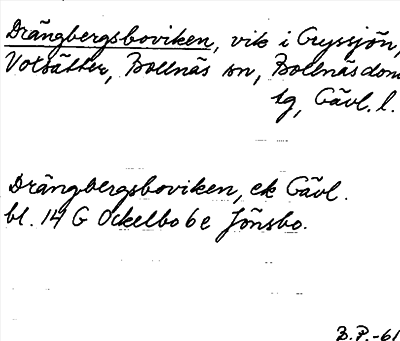 Drängbergsboviken, vik i Gryssjön,
Votsätter, Bollnäs sn, Bollnäs dom
sg, Gävl. l.
Drängbergsboviken, ek Gävl.
bl. 14 G Ockelbo 6e Jönsbo.
B.P.-61